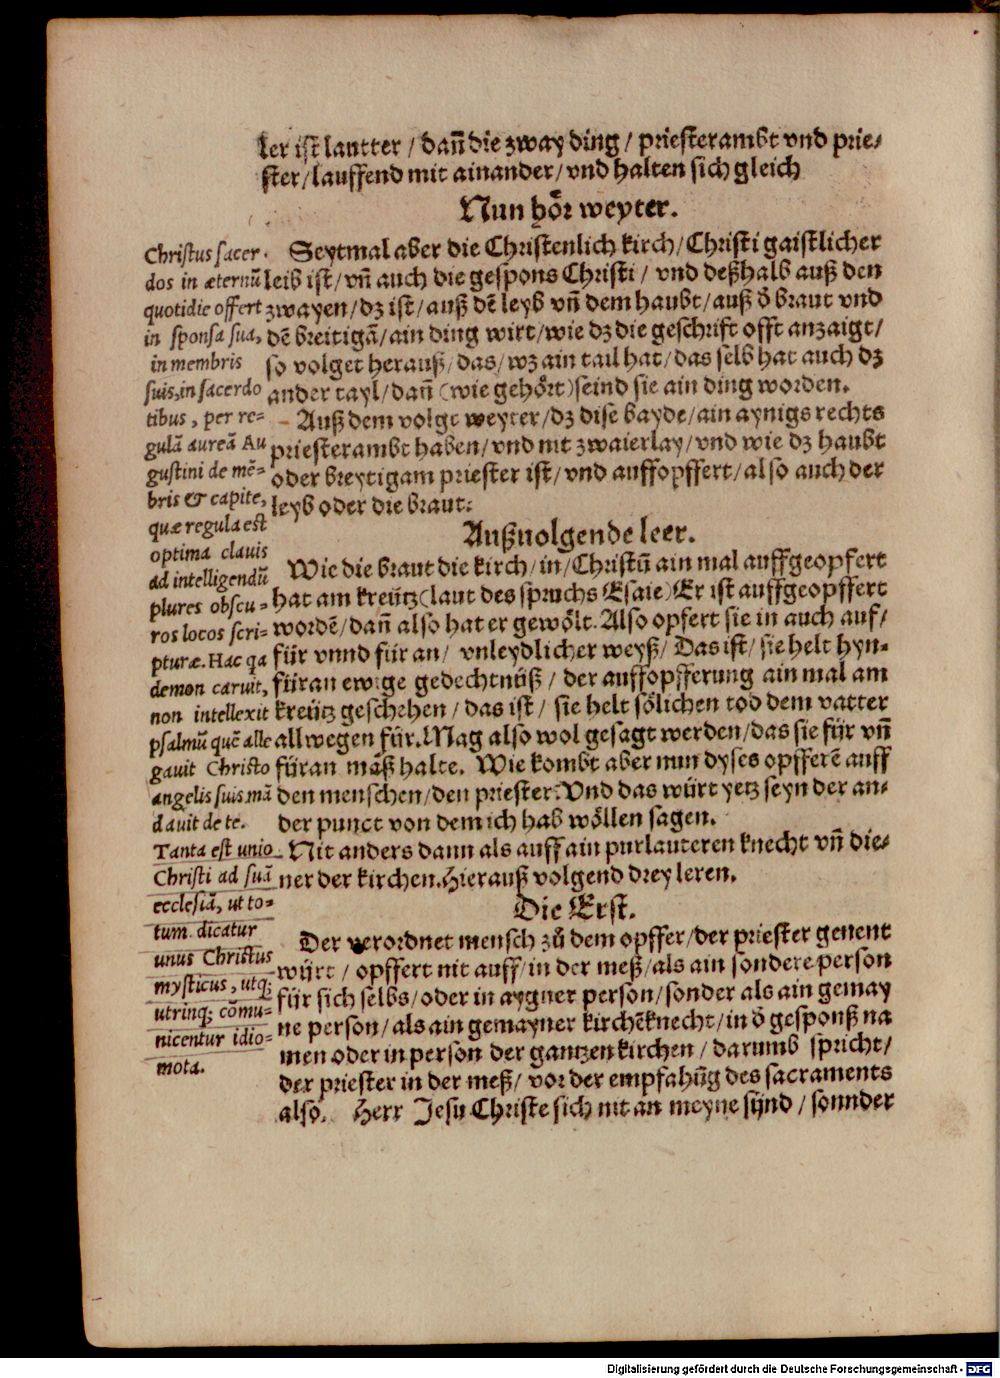 ler ist lautter / dañ die zway ding / priesterambt vnd prie-
ster / lauffend mit ainander / vnd halten sich gleich
Nun hoͤr weyter.
Seytmal aber die Christenlich kirch / Christi gaistlicher
leib ist / vñ auch die gespons Christi / vnd deßhalb auß den
zwayen / dz ist / auß dē leyb vñ dem haubt / auß d̓ braut vnd
dē breitigā / ain ding wirt / wie dz die geschrift offt anzaigt /
so volget herauß / das / wz ain tail hat / das selb hat auch dz
ander tayl / dañ (wie gehoͤrt) seind sie ain ding worden.
Auß dem volgt weyter / dz dise bayde / ain aynigs rechts
priesterambt haben / vnd nit zwaierlay / vnd wie dz haubt
oder breytigam priester ist / vnd auffopffert / also auch der
leyb oder die braut.
Außuolgende leer.
Wie die braut die kirch / in / Christū ain mal auffgeopfert
hat am kreütz (laut des spruchs Esaie) Er ist auffgeopffert
wordē / dañ also hat er gewoͤlt. Also opfert sie in auch auf /
für vnnd für an / vnleydlicher weyß / Das ist / sie helt hyn-
füran ewige gedechtnüß / der auffopfferung ain mal am
kreütz geschehen / das ist / sie helt soͤlichen tod dem vatter
allwegen für. Mag also wol gesagt werden / das sie für vñ
füran mäß halte. Wie kombt aber nun dyses opfferē auff
den menschen / den priester. Vnd das würt yetz seyn der an-
der punct von dem ich hab woͤllen sagen.
Nit anders dann als auff ain purlauteren knecht vñ die-
ner der kirchen. Hierauß volgend drey leren.
Die Erst.
Der verordnet mensch zů dem opffer / der priester genent
würt / opffert nit auff / in der meß / als ain sondere person
für sich selbs / oder in aygner person / sonder als ain gemay
ne person / als ain gemayner kirchēknecht / in d̓ gesponß na
men oder in person der gantzen kirchen / darumb spricht /
der priester in der meß / vor der empfahūg des sacraments
also. Herr Jesu Christe sich nit an meyne sünd / sonnder
Christus sacer
dos in æternū
quotidie offert
in sponsa sua,
in membris
suis, in sacerdo
tibus, per re-
gulā aureā Au
gustini de mē-
bris & capite,
quæ regula est
optima clauis
ad intelligendū
plures obscu-
ros locos scri-
pturæ. Hac qa
demon caruit,
non intellexit
psalmū quē alle
gauit Christo
angelis suis mā
dauit de te.
Tanta est unio
Christi ad suā
ecclesiā, ut to-
tum dicatur
unus Christus
mysticus, utq;
utrinq; cōmu-
nicentur idio-
mota.
Digitalisierung gefördert durch die Deutsche Forschungsgemeinschaft - DFG